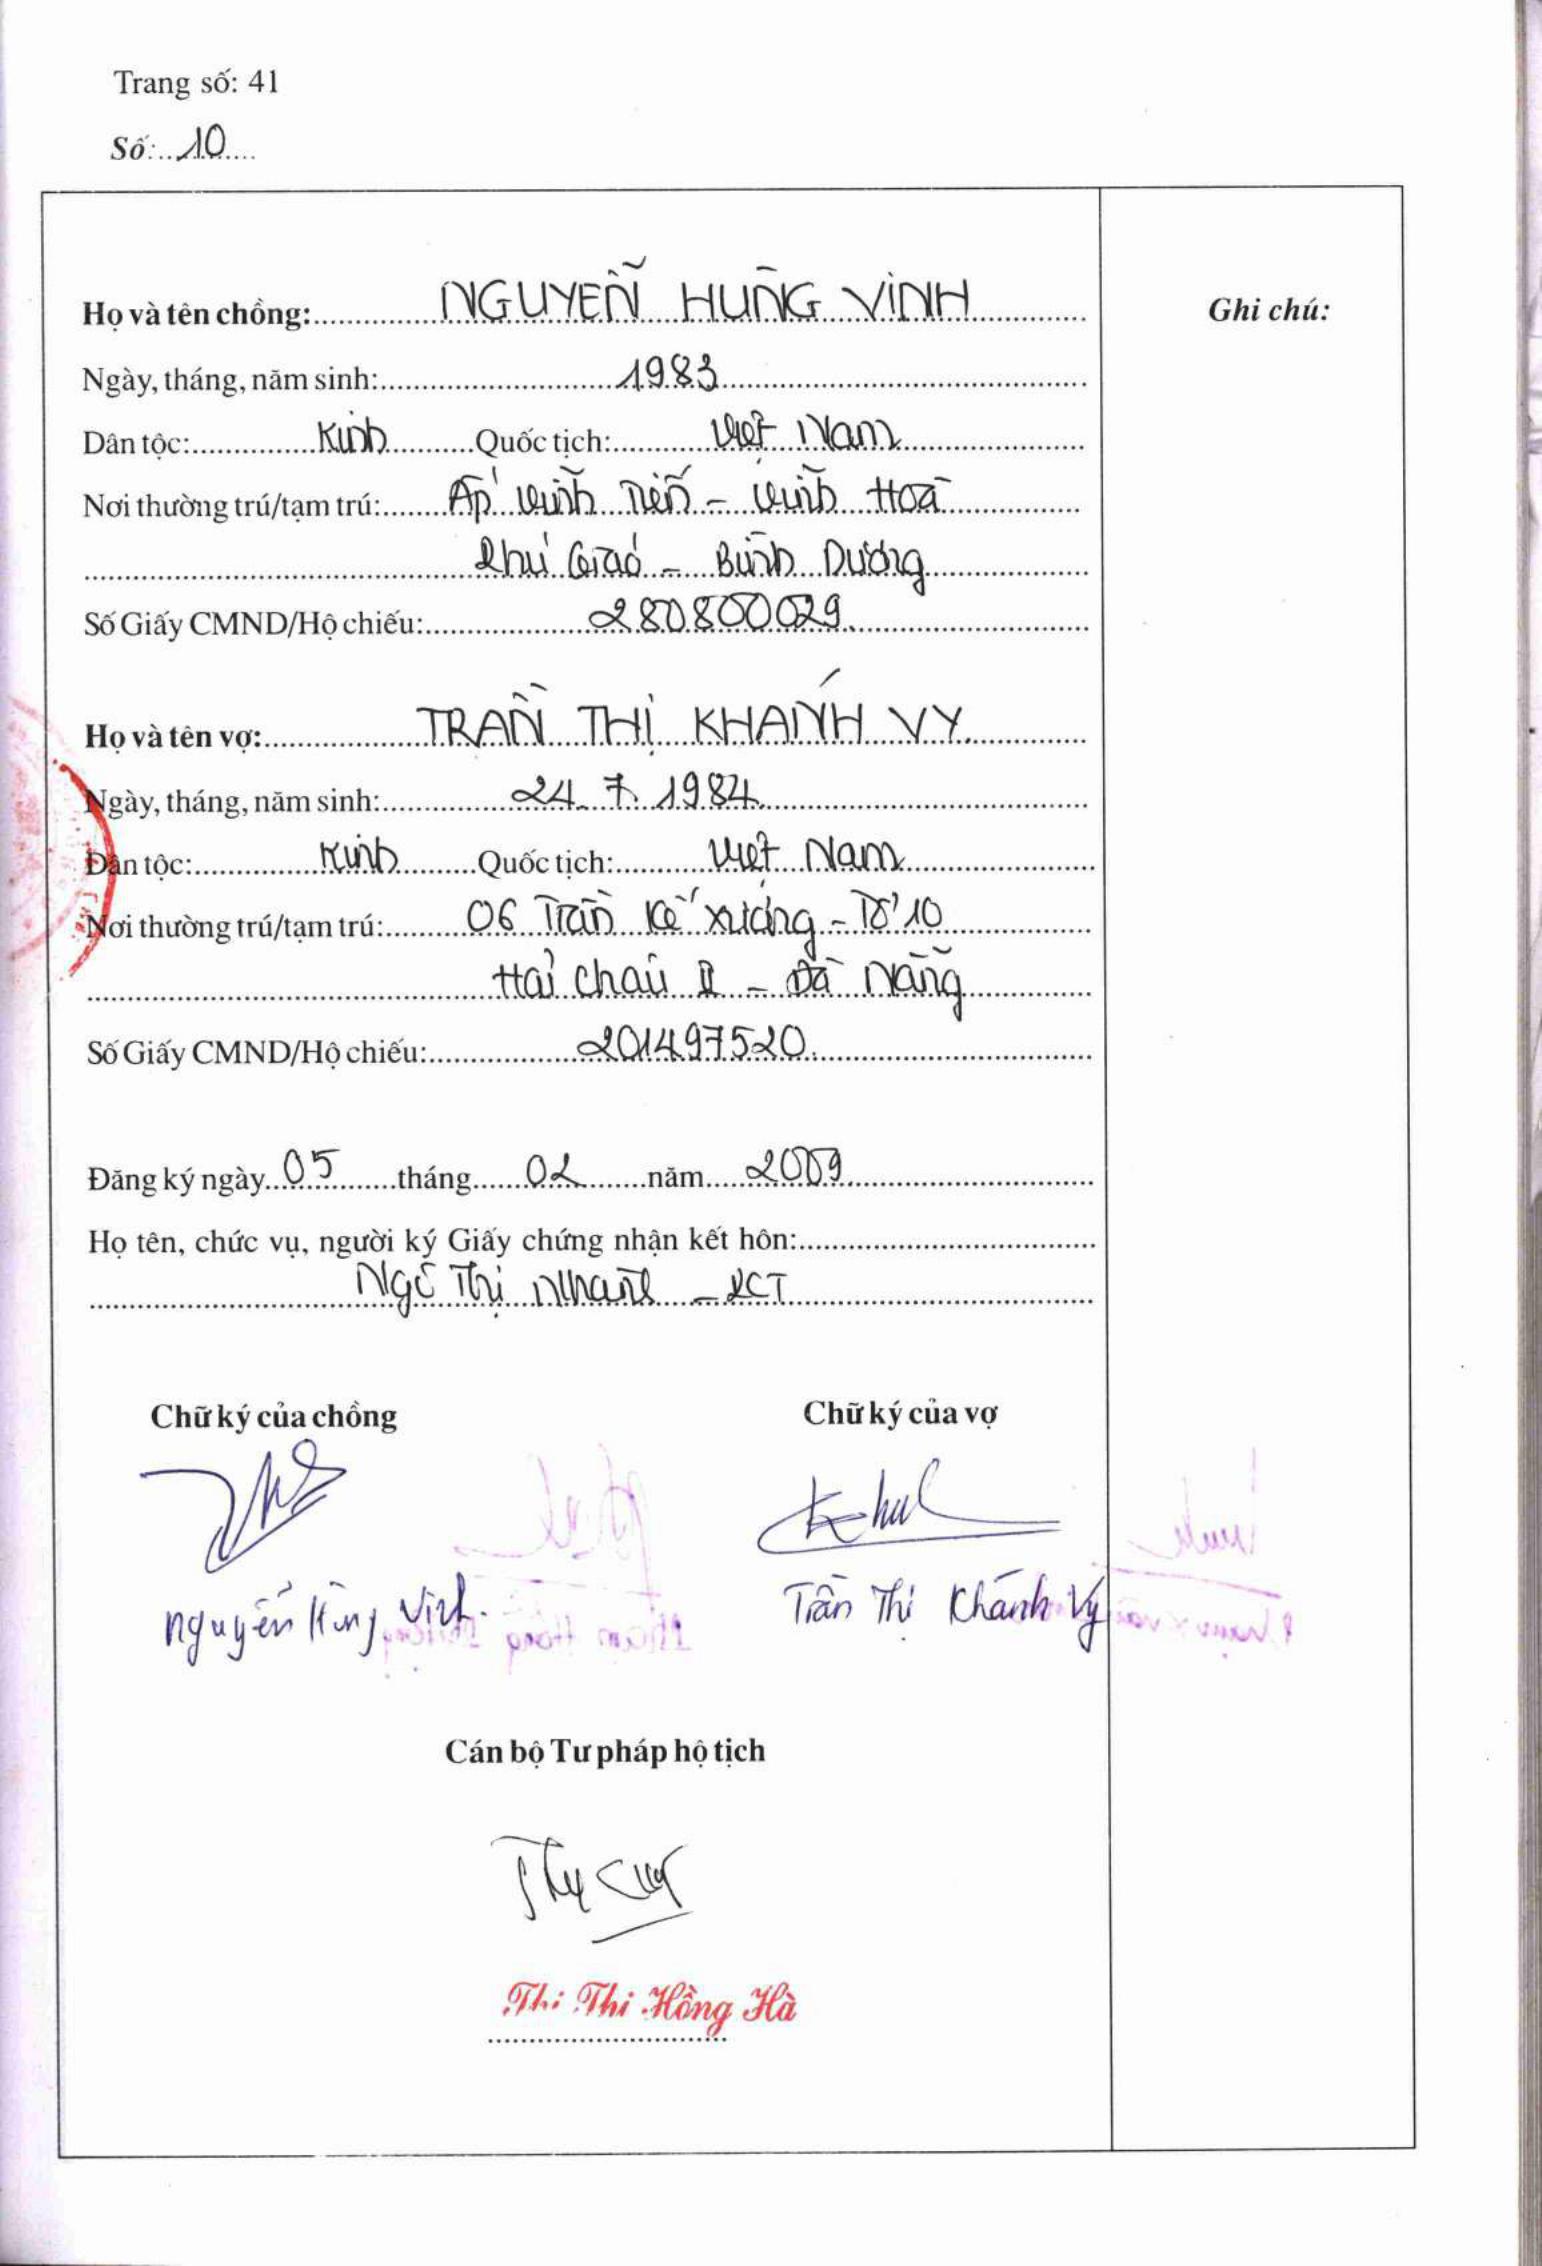 Trang số: 41
Số: 10
Họ và tên chồng: NGUYỄN HÙNG VINH
Ghi chú:
Ngày, tháng, năm sinh: 1983
Dân tộc: Kinh Quốc tịch: Việt Nam
Nơi thường trú/tạm trú: Ấp Vĩnh Tiến - Vĩnh Hoà
Phú Giáo - Bình Dương
Số Giấy CMND/Hộ chiếu: 280800029
Họ và tên vợ: TRẦN THỊ KHÁNH VY
Ngày, tháng, năm sinh: 24.7.1984
Dân tộc: Kinh Quốc tịch: Việt Nam
Nơi thường trú/tạm trú: 06 Trần Kế Xương - Tổ 10
Hải Châu II - Đà Nẵng
Số Giấy CMND/Hộ chiếu: 201497520
Đăng ký ngày 05 tháng 02 năm 2009
Họ tên, chức vụ, người ký Giấy chứng nhận kết hôn:
Ngô Thị Nhanh - PCT
Chữ ký của chồng Chữ ký của vợ
Nguyễn Hùng Vinh. Trần Thị Khánh Vy
Cán bộ Tư pháp hộ tịch
Thi Thi Hồng Hà